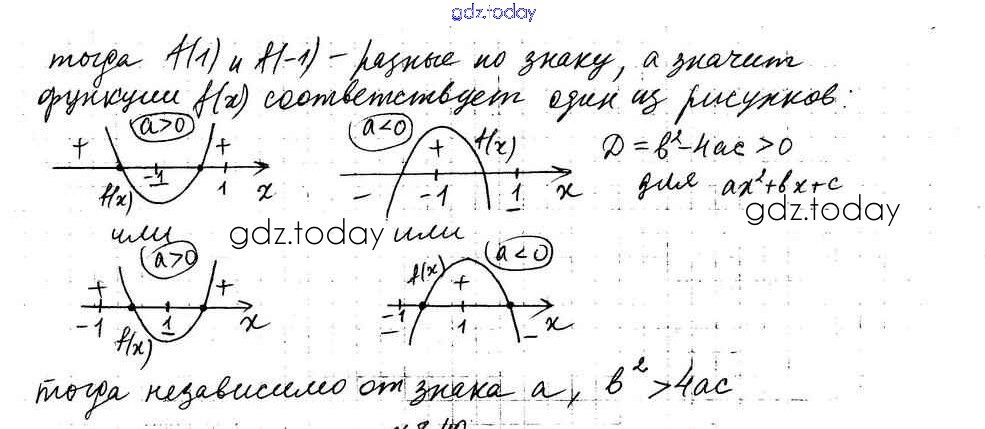 gdz.today
тогда f(1) и f(-1) - разные по знаку, а значит
функции f(x) соответствует один из рисунков:
a>0
a<0
+ + + f(x) D = b²-4ac > 0
f(x) -1 1 x - -1 1 x для ax²+bx+c
или gdz.today или gdz.today
a>0
a<0
+ + f(x) +
-1 f(x) 1 x -1 - 1 - x
тогда независимо от знака a, b² > 4ac